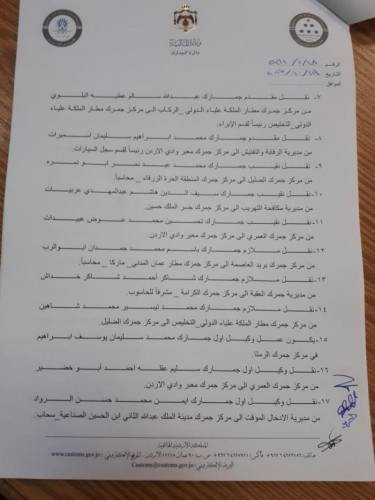 وزارة المالية
دائرة الجمارك
الرقم
التاريخ
الموافق
٧- نقل مقدم جمارك عبدالله سالم عطيه البلوي
من مركز جمرك مطار الملكة علياء الدولي_ الركاب الى مركز جمرك مطار الملكة علياء
الدولي_التخليص رئيساً لقسم الإبراء.
٨- نقل مقدم جمارك محمد ابراهيم سليمان اسميرات
من مديرية الرقابة والتفتيش الى مركز جمرك معبر وادي الاردن رئيساً لقسم سجل السيارات.
٩- نقل نقيب جمارك محمد عبد نصر ابو نمره
من مركز جمرك الضليل الى مركز جمرك المنطقة الحرة الزرقاء _ محاسباً.
١٠- نقل نقيب جمارك سيف الدين هاشم عبدالمهدي عربيات
من مديرية مكافحة التهريب الى مركز جمرك جسر الملك حسين.
١١- نقل نقيب جمارك تحسين محمد عوض عبيدات
من مركز جمرك العمري الى مركز جمرك معبر وادي الاردن.
١٢- نقل ملازم جمارك باسم محمد حمدان ابوالرب
من مركز جمرك بريد العاصمة الى مركز جمرك مطار عمان المدني_ماركا _ محاسباً.
١٣- نقل ملازم جمارك شاكر أحمد شاكر خداش
من مديرية جمرك العقبة الى مركز جمرك الكرامة _ مشرفاً للحاسوب.
١٤- نقل ملازم جمارك محمد تيسير محمد شاهين
من مركز جمرك مطار الملكة علياء الدولي_التخليص الى مركز جمرك الضليل.
١٥- يكون عمل وكيل اول جمارك محمد سليمان يوسف ابراهيم
في مركز جمرك الرمثا.
١٦- نقل وكيل اول جمارك سليم عقله احمد أبو خضير
من مركز جمرك العمري الى مركز جمرك معبر وادي الاردن.
١٧- نقل وكيل اول جمارك ايمن محمد حسن الرواد
من مديرية الادخال المؤقت الى مركز جمرك مدينة الملك عبدالله الثاني ابن الحسين الصناعية_سحاب.
المملكة الأردنية الهاشمية
www.customs.gov.jo
Customs@customs.gov.jo